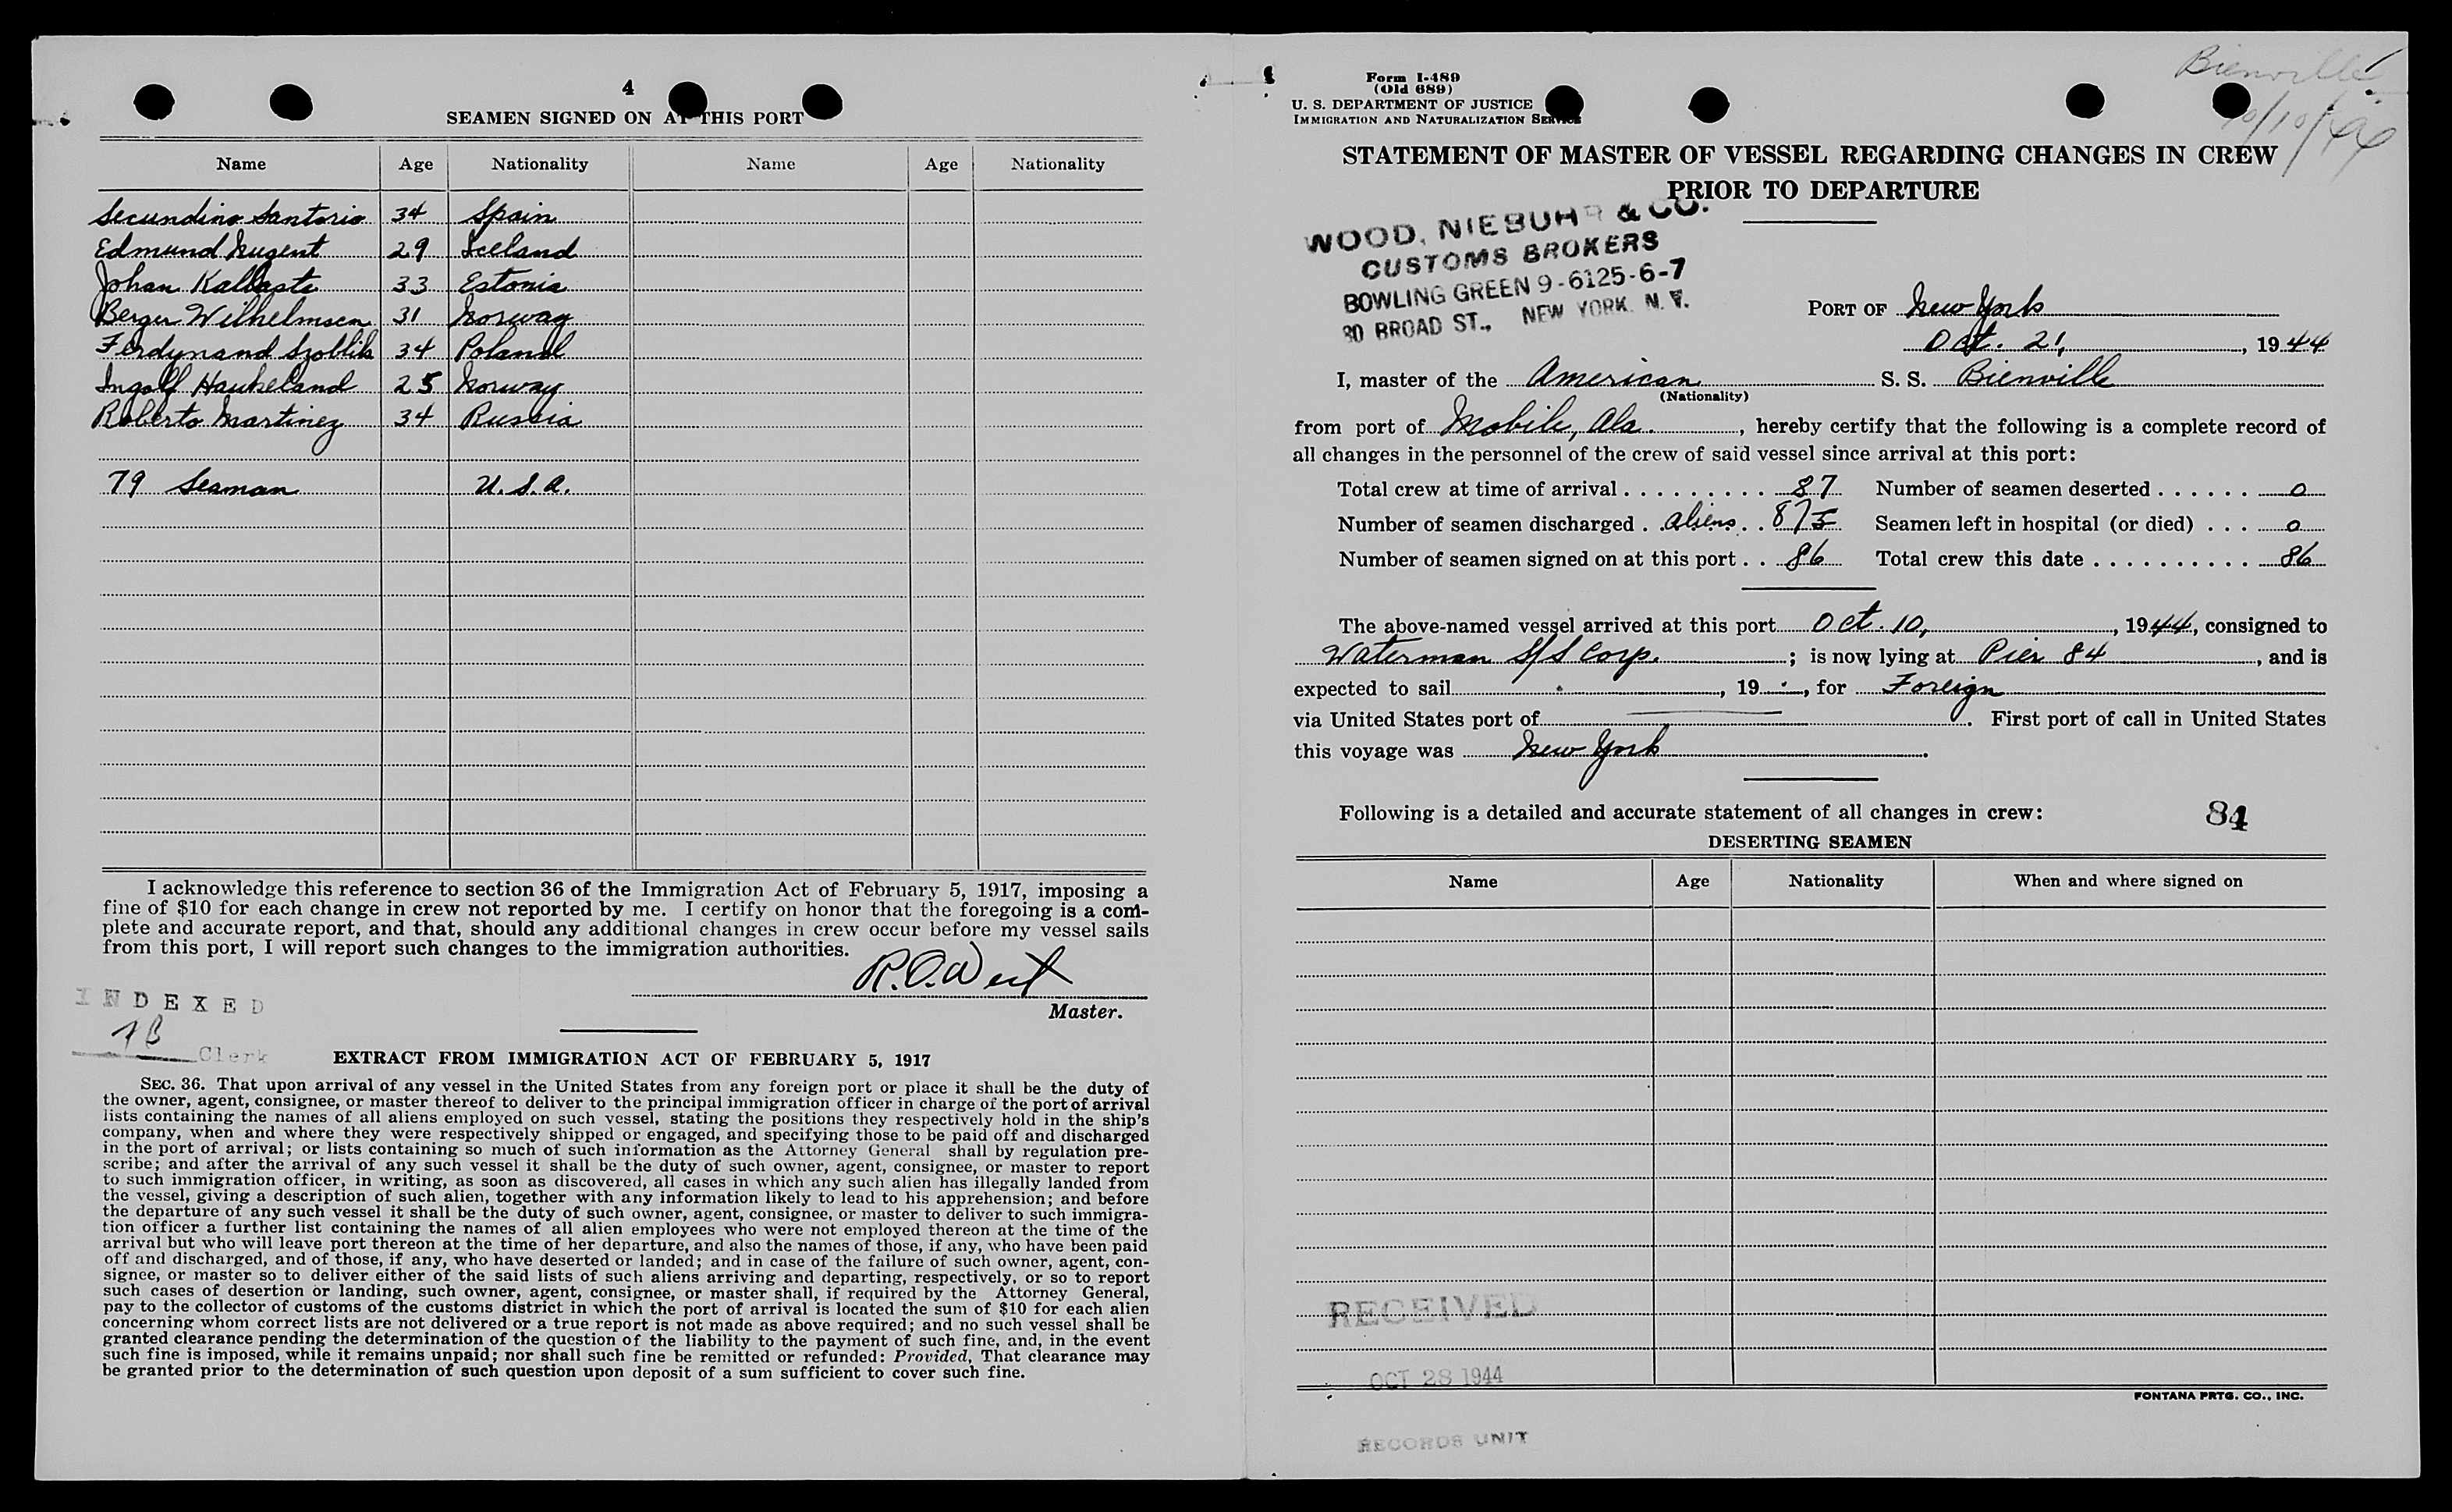 4
SEAMEN SIGNED ON AT THIS PORT
Name Age Nationality Name Age Nationality
Secundino Santorio 34 Spain
Edmund Nugent 29 Iceland
Johan Kallaste 33 Estonia
Berger Wilhelmsen 31 Norway
Ferdynand Szoblik 34 Poland
Ingolf Haukeland 25 Norway
Roberto Martinez 34 Russia
79 Seaman U.S.A.
I acknowledge this reference to section 36 of the Immigration Act of February 5, 1917, imposing a
fine of $10 for each change in crew not reported by me. I certify on honor that the foregoing is a com-
plete and accurate report, and that, should any additional changes in crew occur before my vessel sails
from this port, I will report such changes to the immigration authorities.
R.O. West
Master.
INDEXED
Clerk
EXTRACT FROM IMMIGRATION ACT OF FEBRUARY 5, 1917
SEC. 36. That upon arrival of any vessel in the United States from any foreign port or place it shall be the duty of
the owner, agent, consignee, or master thereof to deliver to the principal immigration officer in charge of the port of arrival
lists containing the names of all aliens employed on such vessel, stating the positions they respectively hold in the ship's
company, when and where they were respectively shipped or engaged, and specifying those to be paid off and discharged
in the port of arrival; or lists containing so much of such information as the Attorney General shall by regulation pre-
scribe; and after the arrival of any such vessel it shall be the duty of such owner, agent, consignee, or master to report
to such immigration officer, in writing, as soon as discovered, all cases in which any such alien has illegally landed from
the vessel, giving a description of such alien, together with any information likely to lead to his apprehension; and before
the departure of any such vessel it shall be the duty of such owner, agent, consignee, or master to deliver to such immigra-
tion officer a further list containing the names of all alien employees who were not employed thereon at the time of the
arrival but who will leave port thereon at the time of her departure, and also the names of those, if any, who have been paid
off and discharged, and of those, if any, who have deserted or landed; and in case of the failure of such owner, agent, con-
signee, or master so to deliver either of the said lists of such aliens arriving and departing, respectively, or so to report
such cases of desertion or landing, such owner, agent, consignee, or master shall, if required by the Attorney General,
pay to the collector of customs of the customs district in which the port of arrival is located the sum of $10 for each alien
concerning whom correct lists are not delivered or a true report is not made as above required; and no such vessel shall be
granted clearance pending the determination of the question of the liability to the payment of such fine, and, in the event
such fine is imposed, while it remains unpaid; nor shall such fine be remitted or refunded: Provided, That clearance may
be granted prior to the determination of such question upon deposit of a sum sufficient to cover such fine.
Bienville
10/10/44
Form I-489
(Old 689)
U. S. DEPARTMENT OF JUSTICE
IMMIGRATION AND NATURALIZATION SERVICE
STATEMENT OF MASTER OF VESSEL REGARDING CHANGES IN CREW
PRIOR TO DEPARTURE
WOOD, NIEBUHR & CO.
CUSTOMS BROKERS
BOWLING GREEN 9-6125-6-7
80 BROAD ST., NEW YORK. N. Y.
PORT OF New York
Oct. 21, 1944
I, master of the American S. S. Bienville
(Nationality)
from port of Mobile, Ala., hereby certify that the following is a complete record of
all changes in the personnel of the crew of said vessel since arrival at this port:
Total crew at time of arrival . . . . . . . . . 87 Number of seamen deserted . . . . . . 0
Number of seamen discharged . aliens . . 87 5 Seamen left in hospital (or died) . . . 0
Number of seamen signed on at this port . . 86 Total crew this date . . . . . . . . . . 86
The above-named vessel arrived at this port Oct. 10, 1944, consigned to
Waterman S/S Corp. ; is now lying at Pier 84, and is
expected to sail , 19 , for Foreign
via United States port of . First port of call in United States
this voyage was New York.
Following is a detailed and accurate statement of all changes in crew: 84
DESERTING SEAMEN
Name Age Nationality When and where signed on
RECEIVED
OCT 28 1944
FONTANA PRTG. CO., INC.
RECORDS UNIT